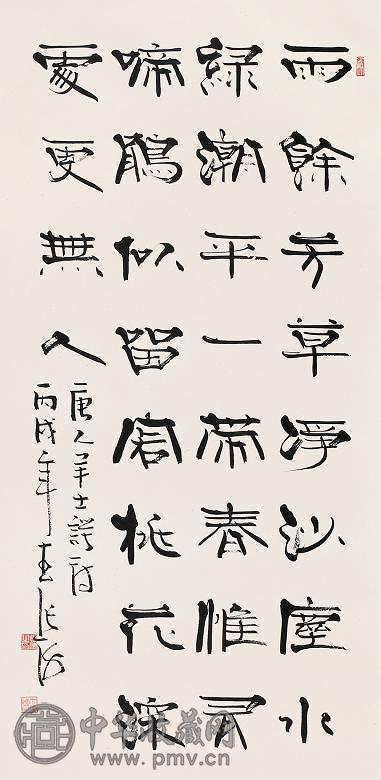 雨餘芳草淨沙塵水
綠潮平一帶春惟有
啼鵑似留客桃花深
處更無人
唐人羊士諤詩
丙戌年春張海
中华收藏网
www.pmv.cn